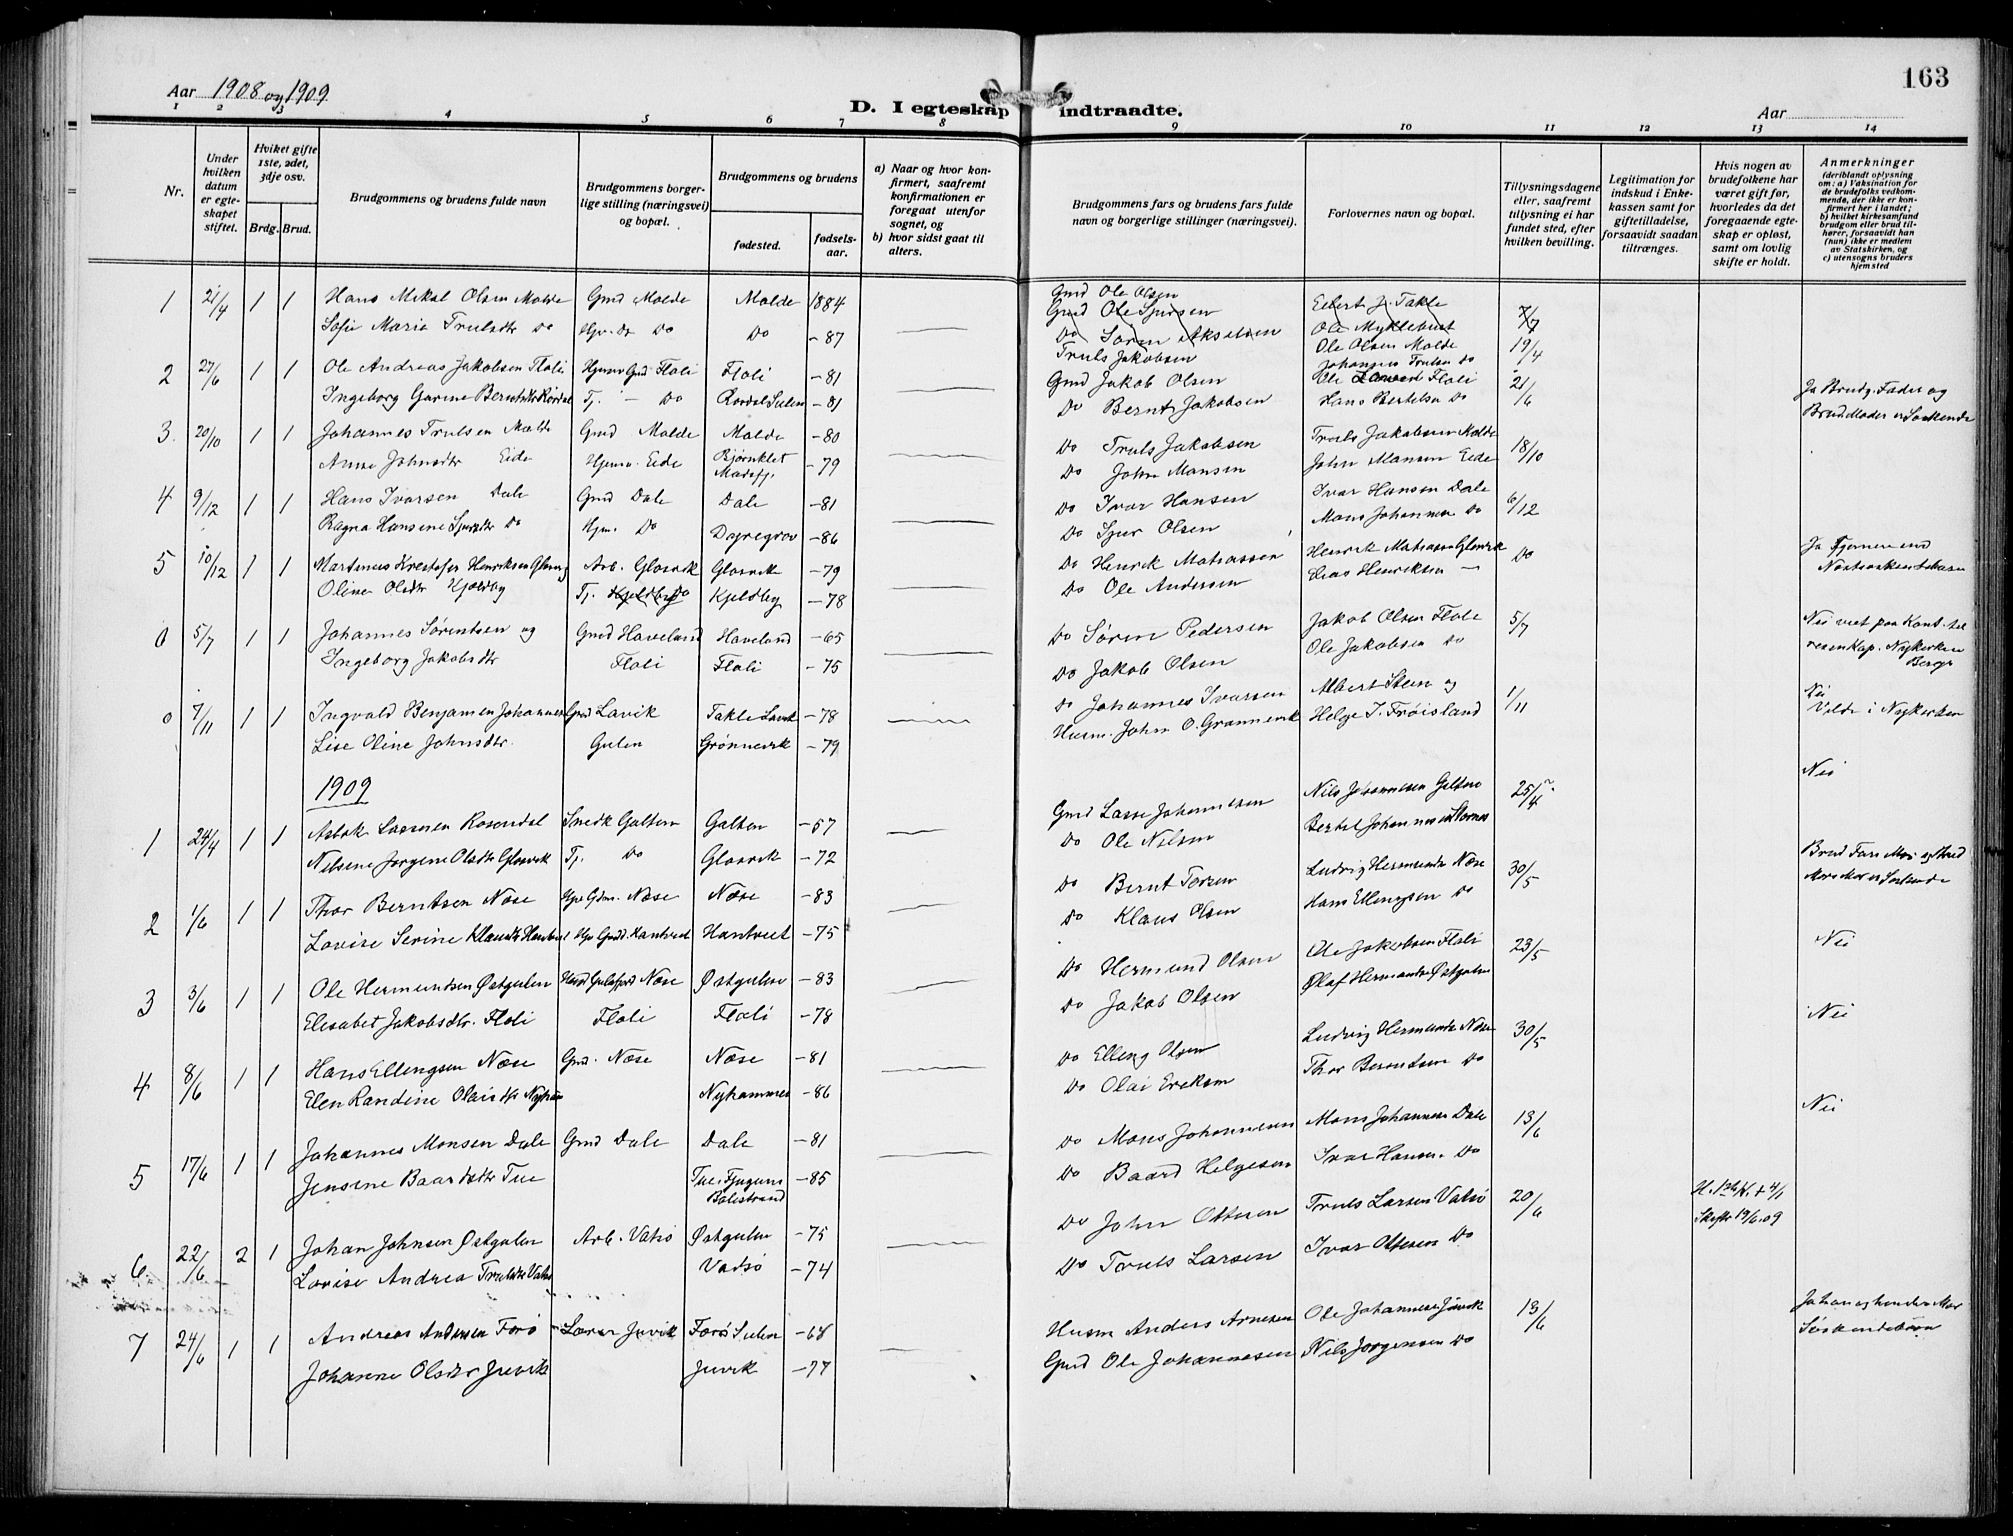 163
Aar 1908 og 1909
D. I egteskap indtraadte.
Aar
1 2 3 4 5 6 7 8 9 10 11 12 13 14
Nr.
Under hvilken datum er egteskapet stiftet.
Hviket gifte 1ste, 2det, 3dje osv.
Brdg. Brud.
Brudgommens og brudens fulde navn
Brudgommens borgerlige stilling (næringsvei) og bopæl.
Brudgommens og brudens
fødested.
fødselsaar.
a) Naar og hvor konfirmert, saafremt konfirmationen er foregaat utenfor sognet, og
b) hvor sidst gaat til alters.
Brudgommens fars og brudens fars fulde navn og borgerlige stillinger (næringsvei).
Forlovernes navn og bopæl.
Tillysningsdagene eller, saafremt tillysning ei har fundet sted, efter hvilken bevilling.
Legitimation for indskud i Enkekassen samt for giftetilladelse, forsaavidt saadan tiltrænges.
Hvis nogen av brudefolkene har været gift før, hvorledes da det foregaaende egteskap er opløst, samt om lovlig skifte er holdt.
Anmerkninger (deriblandt oplysning om: a) Vaksination for de brudefolks vedkommende, der ikke er konfirmert her i landet; b) hvilket kirkesamfund brudgom eller brud tilhører, forsaavidt han (hun) ikke er medlem av Statskirken, og c) utensogns bruders hjemsted
Gmd Ole Olsen
1 21/4 1 1 Hans Mikal Olsen Molde Gmd Molde Molde 1884 Gmd Ole Sjursen Eilert J. Takle 7/7
Sofie Marie Trulsdtr Do Do Do -87 Do Søren Akselsen Ole Myklebust
Truls Jakobsen Ole Olsen Molde 19/4
Johannes Trulsen Do
2 27/6 1 1 Ole Andreas Jakobsen Floli Gmd Floli Floli -81 Gmd Jakob Olsen Ole Floli 21/6 Ja Brudg. Fader og
Ingeborg Garine Berntsdtr Rørdal Tj. - Do Rørdal Sulen -81 Do Bernt Jakobsen Hans Bertelsen Do Brud. Moder er Søskende
3 20/10 1 1 Johannes Trulsen Molde Gmd Molde Molde -80 Do Truls Jakobsen Truls Jakobsen Molde 18/10
Anne Johnsdtr Eide Hjem. Eide Bjørnklet -79 Do John Monsen John Monsen Eide
4 9/12 1 1 Hans Ivarsen Dale Gmd Dale Dale -81 Do Ivar Hansen Ivar Hansen Dale 6/12
Ragna Hansene Sjursdtr Do Hjm. Do -86 Do Sjur Olsen Mons Johannesen Do
5 10/12 1 1 Martinus Krestofer Henriksen Glosvig Arb. Glosvik Glosvik -79 Do Henrik Matiassen Henrik Matiassen Glosvik Do
Oline Olsdtr Kjeldby Tj. Kjeldby Do Kjeldby -78 Do Ole Andersen Elias Henriksen -
0 5/7 1 1 Johannes Sørensen og Gmd Haveland Haveland -65 Do Søren Pedersen Jakob Olsen Floli 5/7 Nei viet paa
Ingeborg Jakobsdtr Floli Floli -75 Do Jakob Olsen Ole Jakobsen Do Nykirken
Bergen
0 7/11 1 1 Ingvald Benjamen Johannes Gmd Lavik Takle Lavik -78 Do Johannes Ivarsen Albert Steen og 1/11 Nei
Lise Oline Johnsdtr. Gulen Grønnevik -79 Husm. John O. Grønnevik Helge I. Frøisland Viede i Nykirken
1909
1 24/4 1 1 Asbok Lassesen Rosendal Snedk Galten Galten -57 Gmd Lasse Johannesen Nils Johannesen Galten 25/4 Nei
Nilsine Jørgene Olsdtr Glosvik Tj. Do Glosvik -72 Do Ole Nilsen Bertel Johannesen
2 1/6 1 1 Thor Berntsen Nøse Nøse Nøse -83 Do Bernt Torsen Ludvig Hermunds Nøse 30/5
Lovise Serine Klausdtr Hantveit Hantveit Hantveit -75 Do Klaus Olsen Hans Ellengsen Do
3 3/6 1 1 Ole Hermundsen Østgulen Nøse Østgulen -83 Do Hermund Olsen Ole Jakobsen Floli 23/5 Nei
Elisabet Jakobsdtr. Floli Floli Floli -78 Do Jakob Olsen Olaf Hermunds Østgulen
4 8/6 1 1 Hans Ellengsen Nøse Gmd. Nøse Nøse -81 Do Elleng Olsen Ludvig Hermunds Nøse 30/5 Nei
Elen Randine Olaisdtr Nyham Nyhammer -86 Do Olai Eriksen Thor Berentsen Do
5 17/6 1 1 Johannes Monsen Dale Gmd Dale Dale -81 Do Mons Johannesen Mons Johannesen Dale 13/6 Nei
Jensine Baardsdtr Tue Tue, Balestrand -85 Do Baard Helgesen Ivar Hansen Do
6 22/6 2 1 Johan Johnsen Østgulen Arb. Vatsø Østgulen -75 Do John Ottesen Truls Larsen Vatsø 20/6 Skifte 19/6.09
Lovise Andrea Trulsdtr Vatsø Vatsø -74 Do Truls Larsen Ivar Ottesen Do
7 24/6 1 1 Andreas Andersen Forø Juvik Forø Sulen -68 Husm Anders Arnesen Ole Johannesen Juvik 13/6 Johan og hendes Mor
Johanne Olsdtr Juvik Juvik -77 Gmd Ole Johannesen Nils Jørgensen Do Søskendebørn